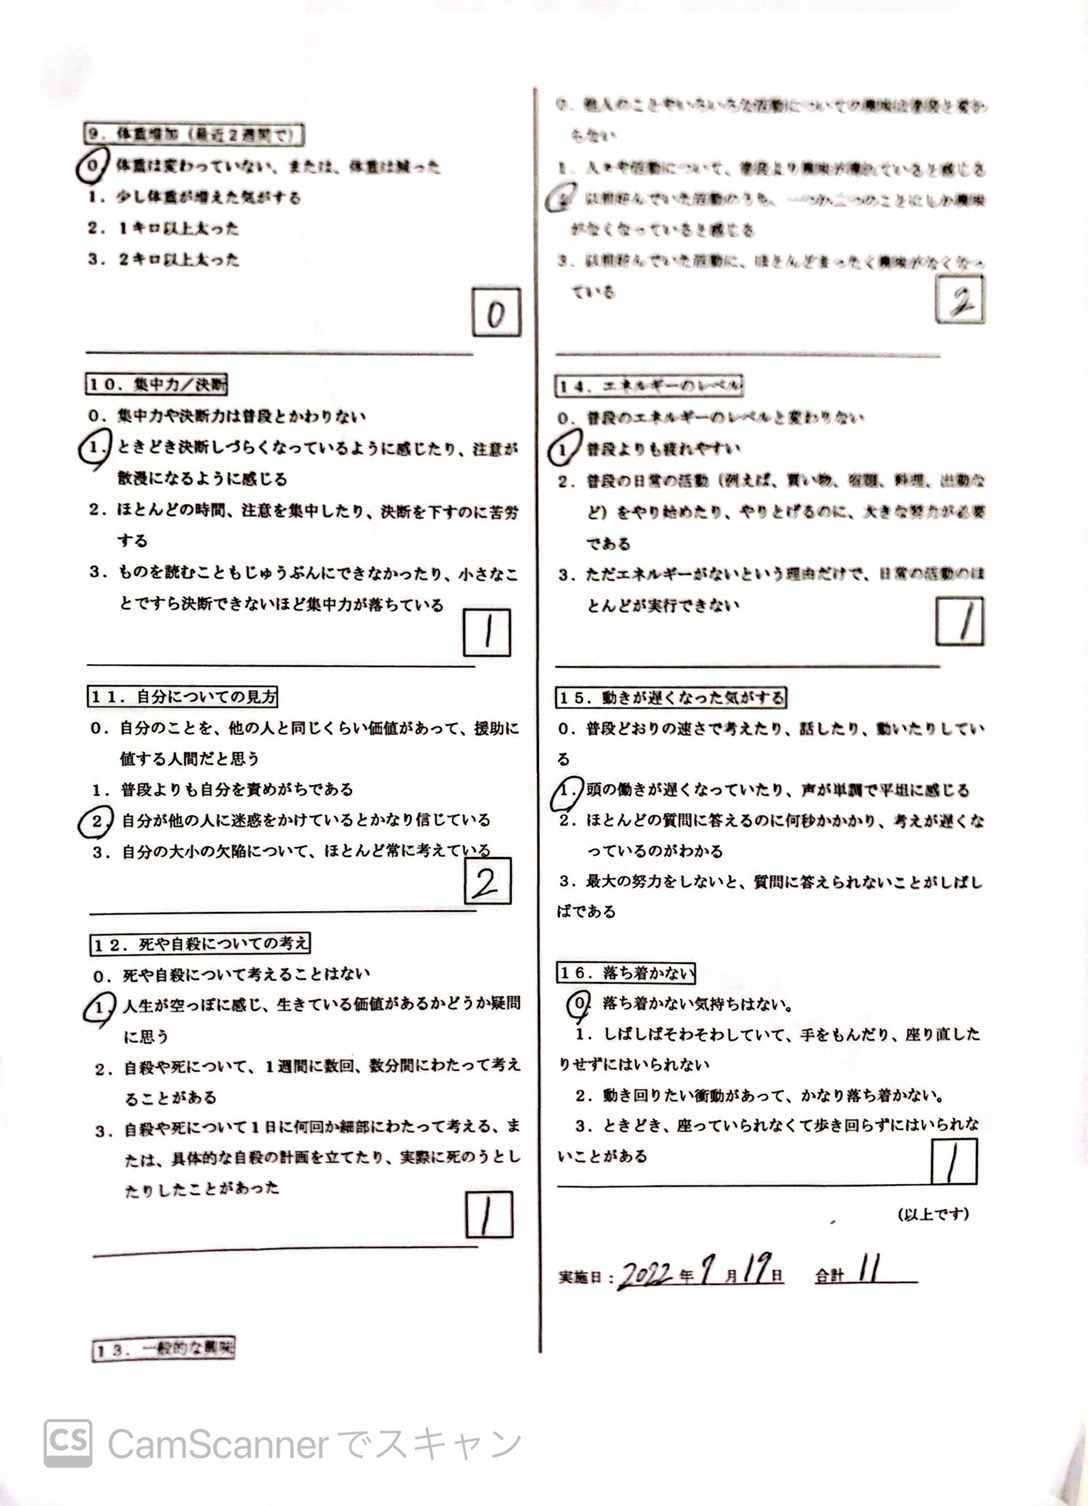 9．体重増加（最近２週間で）
0．体重は変わっていない、または、体重は減った
1．少し体重が増えた気がする
2．１キロ以上太った
3．２キロ以上太った
0
10．集中力／決断
0．集中力や決断力は普段とかわりない
1．ときどき決断しづらくなっているように感じたり、注意が
散漫になるように感じる
2．ほとんどの時間、注意を集中したり、決断を下すのに苦労
する
3．ものを読むこともじゅうぶんにできなかったり、小さなこ
とですら決断できないほど集中力が落ちている
1
11．自分についての見方
0．自分のことを、他の人と同じくらい価値があって、援助に
値する人間だと思う
1．普段よりも自分を責めがちである
2．自分が他の人に迷惑をかけているとかなり信じている
3．自分の大小の欠陥について、ほとんど常に考えている
2
12．死や自殺についての考え
0．死や自殺について考えることはない
1．人生が空っぽに感じ、生きている価値があるかどうか疑問
に思う
2．自殺や死について、１週間に数回、数分間にわたって考え
ることがある
3．自殺や死について１日に何回か細部にわたって考える、ま
たは、具体的な自殺の計画を立てたり、実際に死のうとし
たりしたことがあった
1
13．一般的な興味
0．他人のことやいろいろな活動についての興味は普段と変わ
らない
1．人々や活動について、普段より興味が薄れていると感じる
2．以前好んでいた活動のうち、一つか二つのことにしか興味
がなくなっていると感じる
3．以前好んでいた活動に、ほとんどまったく興味がなくなっ
ている
2
14．エネルギーのレベル
0．普段のエネルギーのレベルと変わりない
1．普段よりも疲れやすい
2．普段の日常の活動（例えば、買い物、宿題、料理、出勤な
ど）をやり始めたり、やりとげるのに、大きな努力が必要
である
3．ただエネルギーがないという理由だけで、日常の活動のほ
とんどが実行できない
1
15．動きが遅くなった気がする
0．普段どおりの速さで考えたり、話したり、動いたりしてい
る
1．頭の働きが遅くなっていたり、声が単調で平坦に感じる
2．ほとんどの質問に答えるのに何秒かかかり、考えが遅くな
っているのがわかる
3．最大の努力をしないと、質問に答えられないことがしばし
ばである
16．落ち着かない
0．落ち着かない気持ちはない。
1．しばしばそわそわしていて、手をもんだり、座り直した
りせずにはいられない
2．動き回りたい衝動があって、かなり落ち着かない。
3．ときどき、座っていられなくて歩き回らずにはいられな
いことがある
1
（以上です）
実施日：2022年9月19日 合計 11
CS CamScannerでスキャン